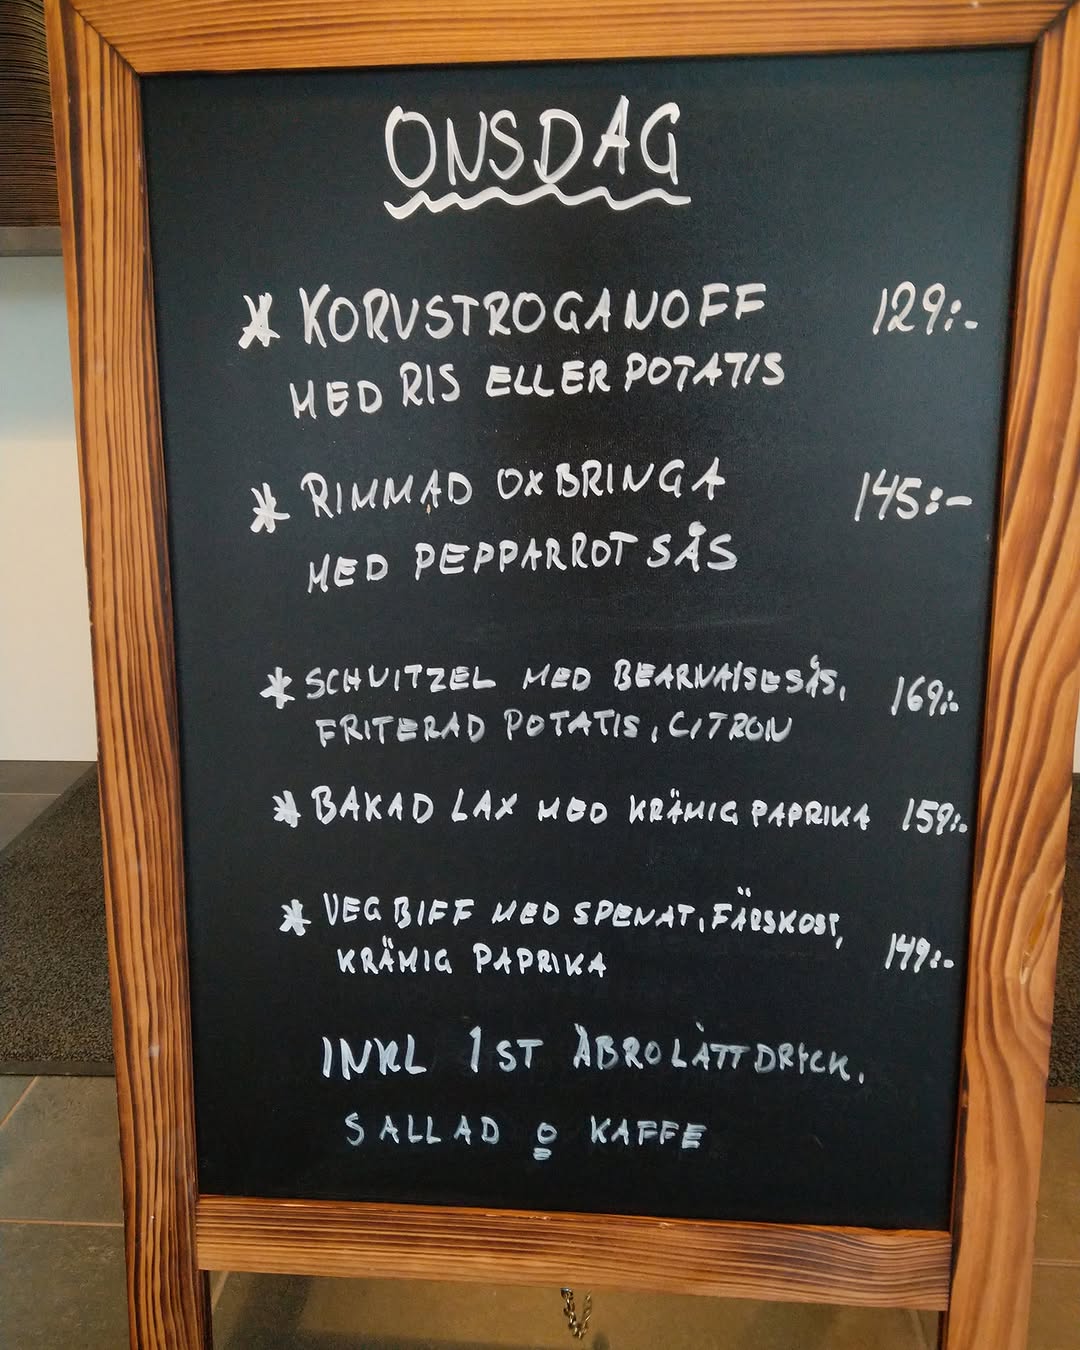 ONSDAG
* KORVSTROGANOFF 129:-
MED RIS ELLER POTATIS
* RIMMAD OXBRINGA 145:-
MED PEPPARROT SÅS
* SCHNITZEL MED BEARNAISESÅS, 169:-
FRITERAD POTATIS, CITRON
* BAKAD LAX MED KRÄMIG PAPRIKA 159:-
* VEG BIFF MED SPENAT, FÄRSKOST,
KRÄMIG PAPRIKA 149:-
INKL 1 ST ÅBRO LÄTTDRYCK,
SALLAD o KAFFE